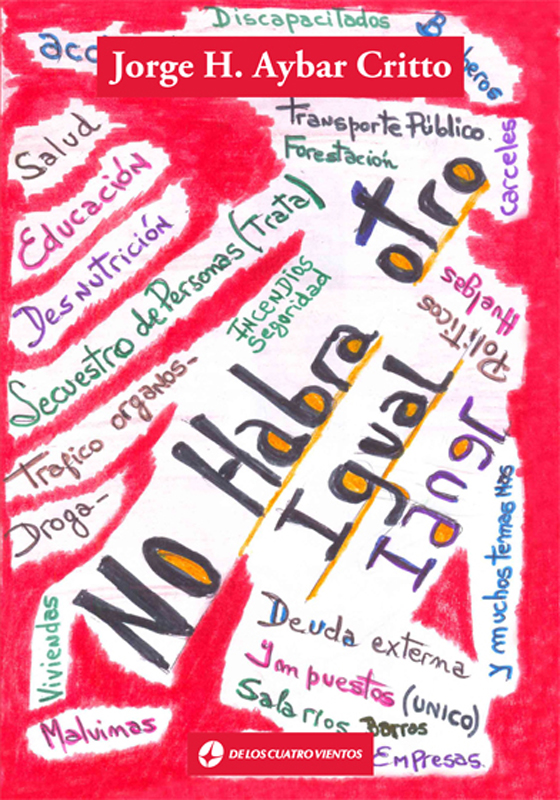 Discapacitados
acc
Jorge H. Aybar Critto
Transporte Público.
Forestación
carceles
Salud
Educación
Desnutrición
Secuestro de Personas (Trata)
INCENDIOS
Segoridad
Huelgas
Políticos
Trafico organos-
Droga-
No Habra otro
Igual
Iangr
y muchos temas Mas
Viviendas
Malvimas
Deuda externa
Impuestos (UNICO)
Salarios Barros
Empresas.
DE LOS CUATRO VIENTOS